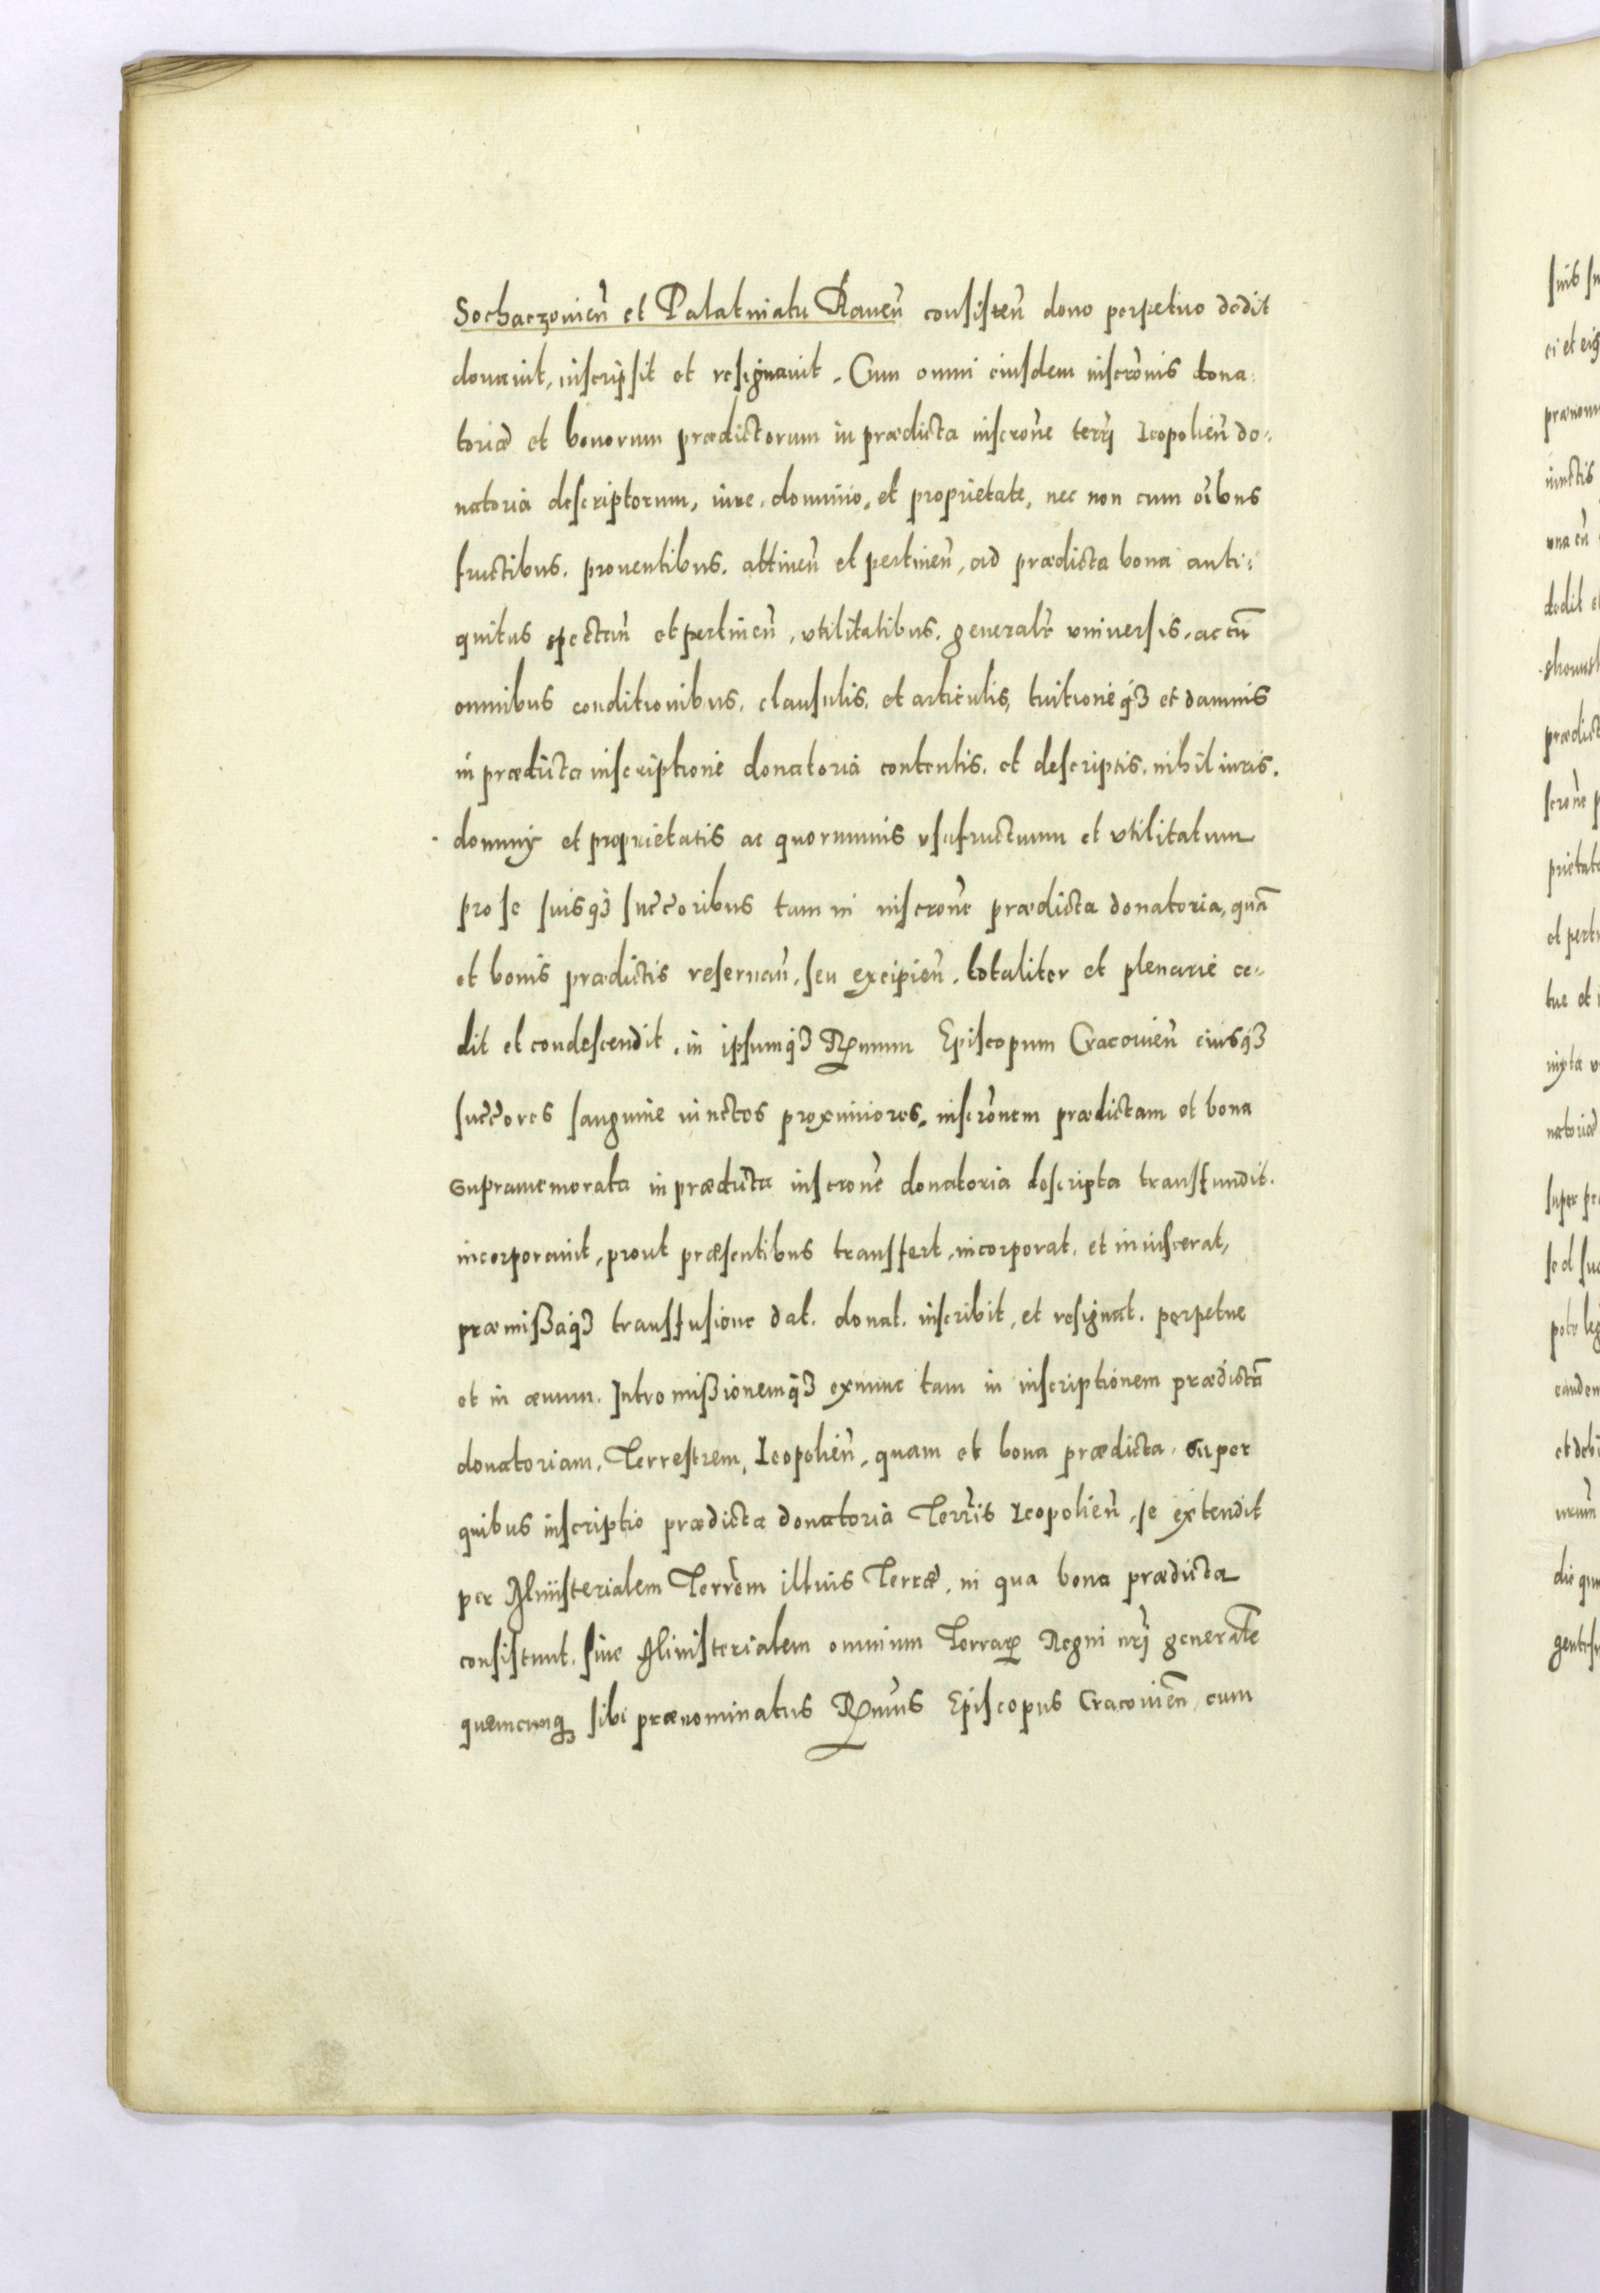 Sochaczouien̄ et Palatinatu Rauen̄ consisten̄ dono perpetuo dedit
donauit, inscripsit et resignauit. Cum omni eiusdem inscrōnis dona-
toriæ et bonorum prædictorum in prædicta inscrōne terrī Leopolien̄ do-
natoria descriptorum, iure, dominio, et proprietate, nec non cum oībus
fructibus, prouentibus, attinen̄ et pertinen̄, ad prædicta bona anti-
quitus spectan̄ et pertinen̄, vtilitatibus, generalr̄ vniuersis, ac cū
omnibus conditionibus, clausulis, et articulis, tuitioneq₃ et damnis
in prædicta inscriptione donatoria contentis, et descriptis, nihil iuris,
dominij et proprietatis ac quorumuis vsufructuum et vtilitatum
pro se suisq₃ succ̄oribus tam in inscrōne prædicta donatoria, quā
et bonis prædictis reseruan̄, seu excipien̄, totaliter et plenarie ce-
dit et condescendit, in ipsumq₃ Rn̄mum Episcopum Cracouien̄ eiusq₃
succ̄ores sanguine iunctos proximiores, inscrōnem prædictam et bona
supramemorata in prædicta inscrōne donatoria descripta transfundit,
incorporauit, prout præsentibus transfert, incorporat, et inuiscerat,
præmißaq₃ transfusione dat, donat, inscribit, et resignat, perpetue
et in æuum. Intromißionemq₃ exnunc tam in inscriptionem prædictā
donatoriam, Terrestrem, Leopolien̄, quam et bona prædicta, super
quibus inscriptio prædicta donatoria Terrīs Leopolien̄, se extendit
per Ministerialem Terrēm illius Terræ, in qua bona prædicta
consistunt, siue Ministerialem omnium Terrarꝝ Regni nrī generalē
quemcunq₃ sibi prænominatus Rn̄mus Episcopus Cracouien̄, cum